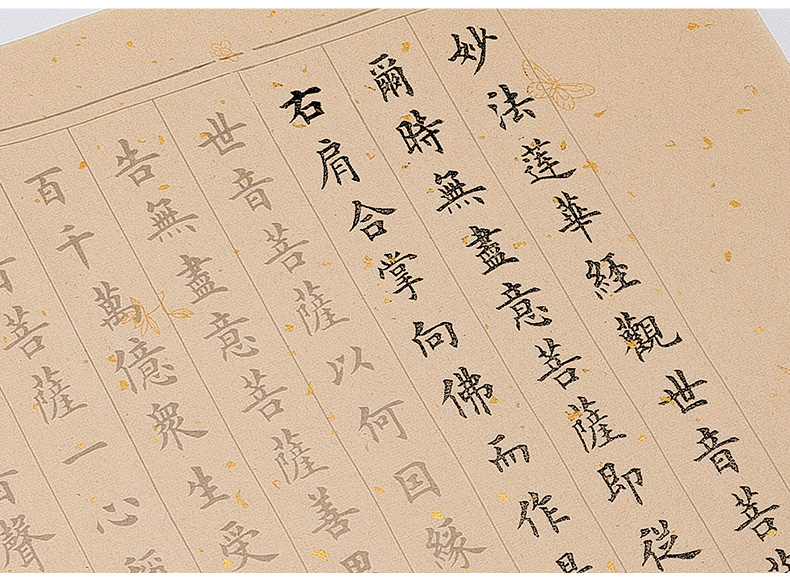 妙法蓮華經觀世音菩
爾時無盡意菩薩即從
右肩合掌向佛而作是
世音菩薩以何因緣
告無盡意菩薩善男
百千萬億眾生受
菩薩一心稱
聲